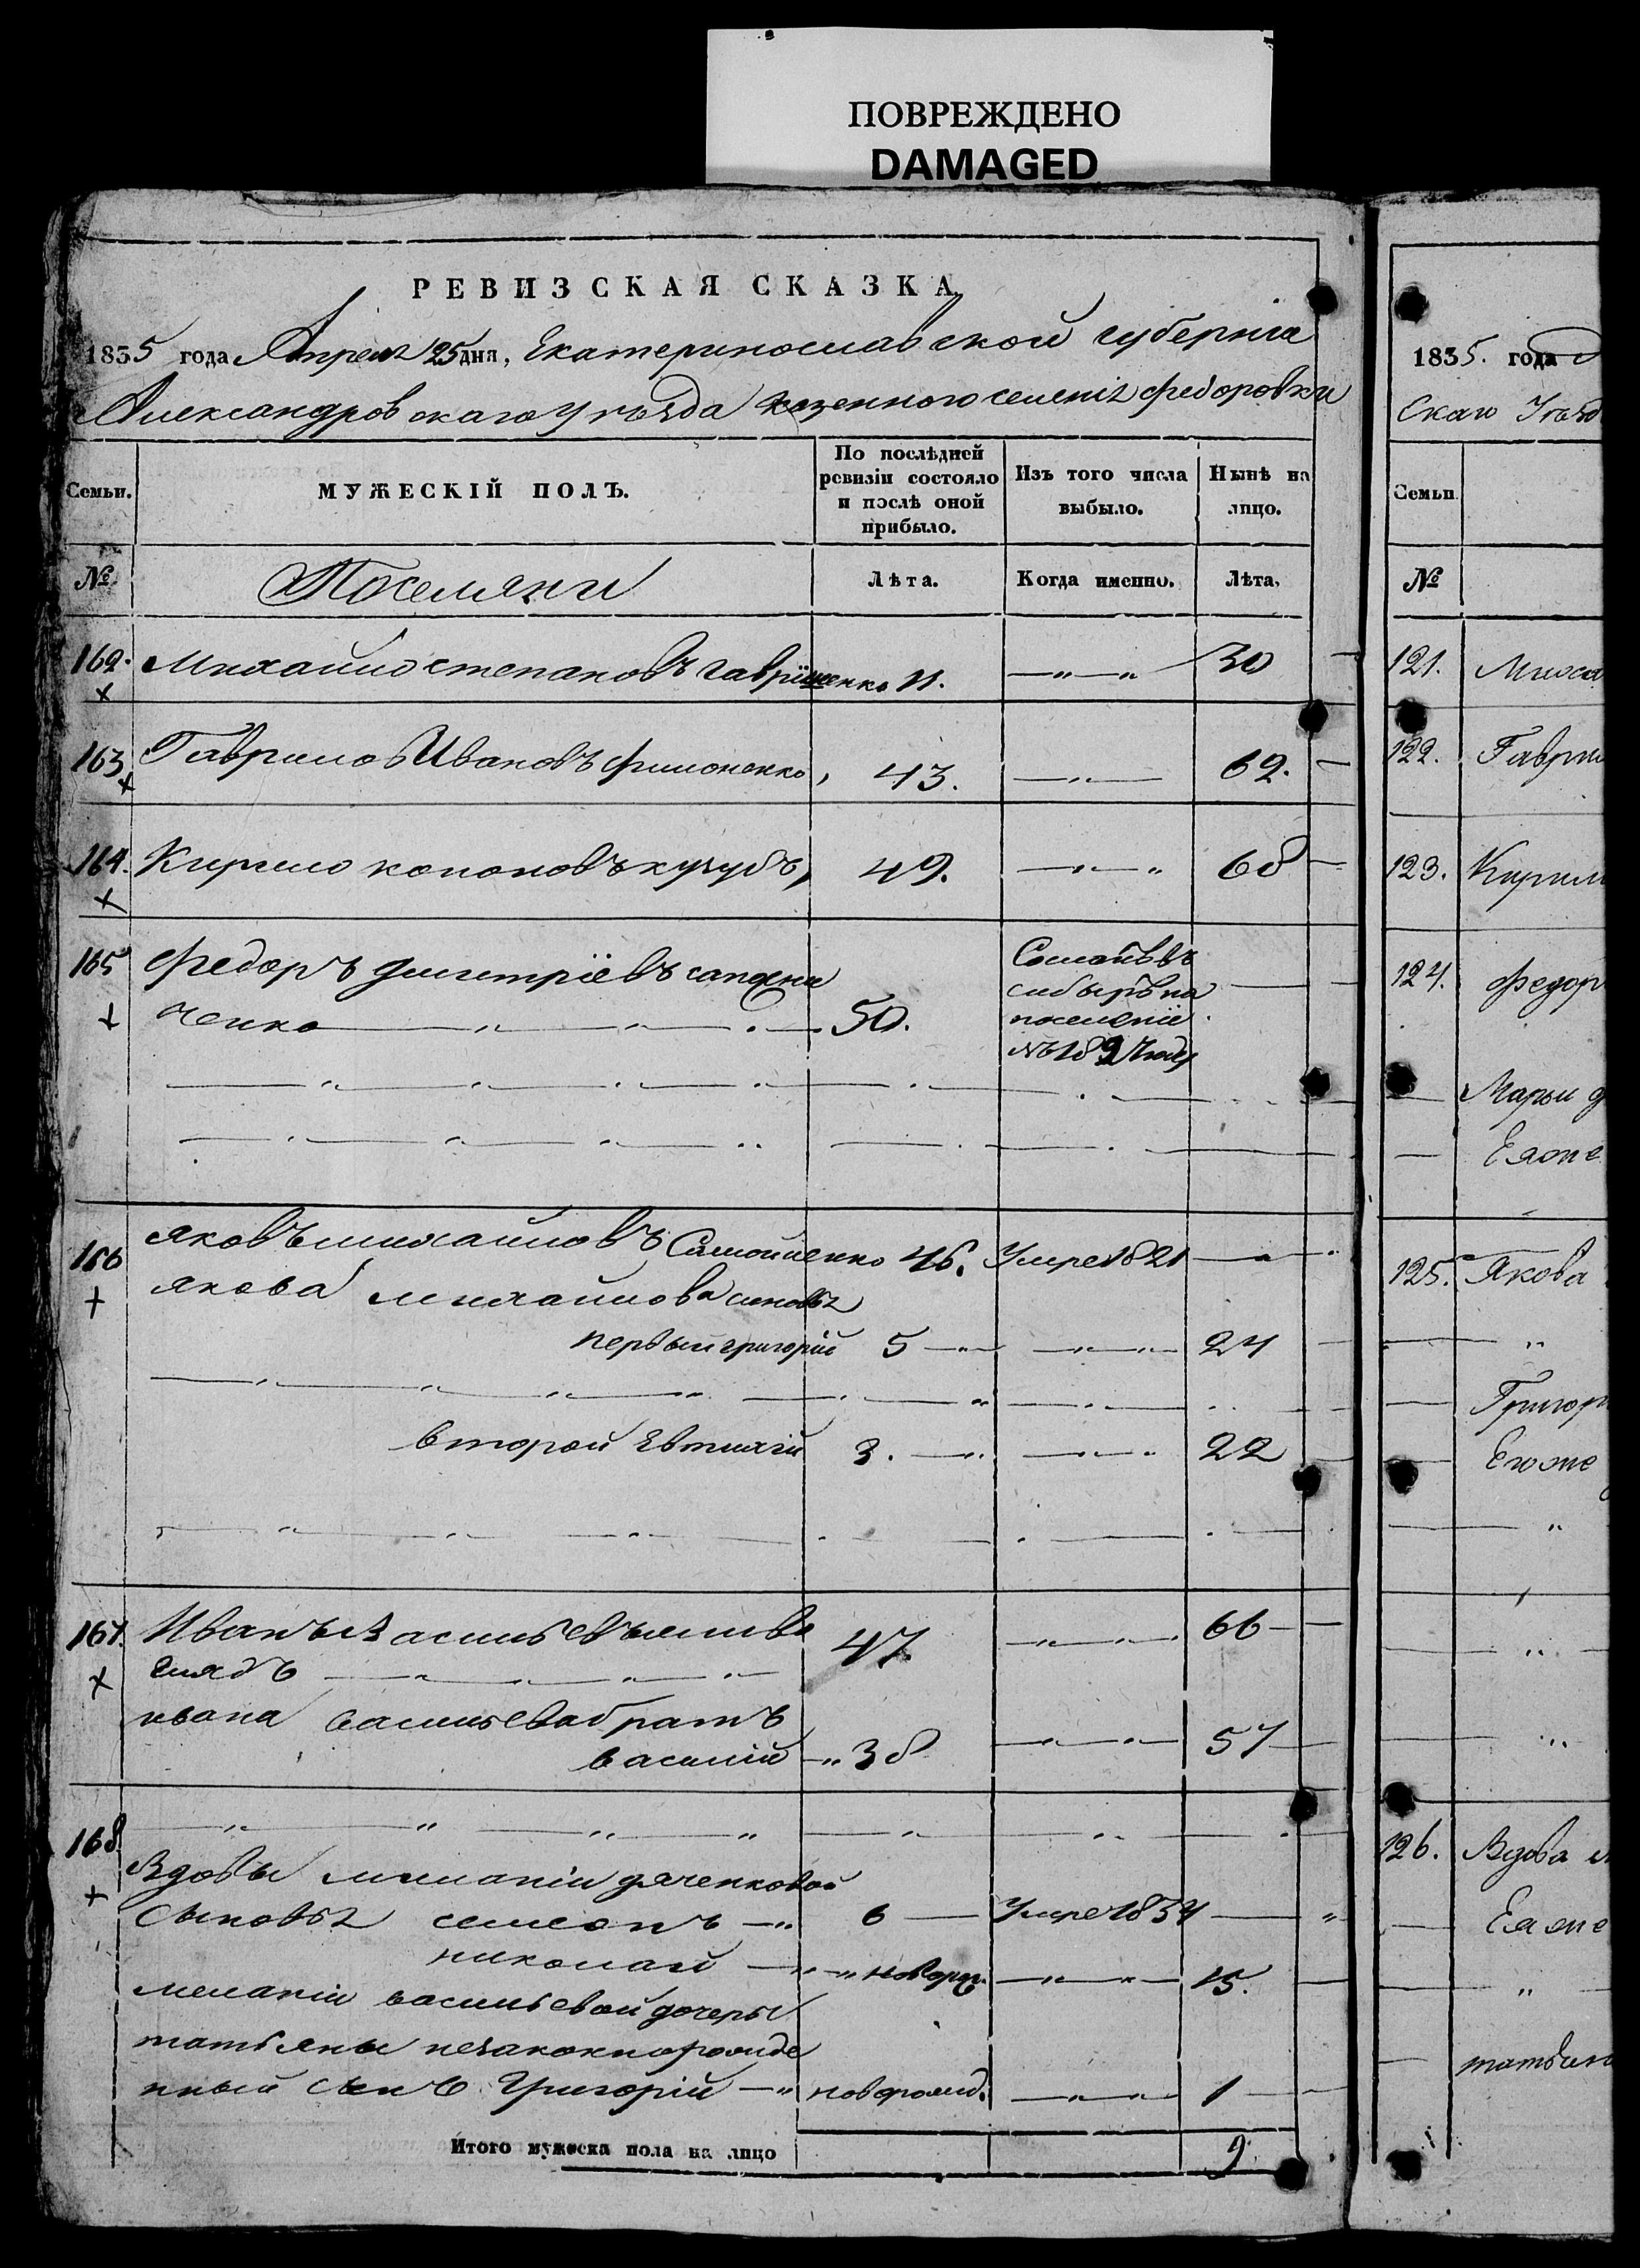 ПОВРЕЖДЕНО
DAMAGED
РЕВИЗСКАЯ СКАЗКА
1835 года Апреля 25 дня, Екатеринославской губернiи
Александровскаго Уезда казенного селенiя федоровки
Семьи.
МУЖЕСКІЙ ПОЛЪ.
По послѣдней ревизіи состояло и послѣ оной прибыло.
Изъ того числа выбыло.
Нынѣ на лицо.
№
Поселяни
Лѣта.
Когда именно.
Лѣта.
162. Михайло степановъ гаврiшенко 11. 30
163 Гаврило Ивановъ филоненко, 43. 62.
164. Кирило кононовъ 49. 68
165 Федоръ дмитрiевъ
ченко 50. Сосланъ въ сибырь на поселенiе 1827 году
166 яковъ михайловъ Самойленко 46. Умре 1821
якова михайлова сыновья
первый григорiй 5 24
второй Евтихiй 3. 22
167. Иванъ Васильевъ
47. 66
ивана васильева братъ
василiй 38 57
168
Вдовы меланiи дяченковой
Сыновья семенъ 6 Умре 1834
николай новорож. 15.
меланiи васильевой дочеры
татьяны незаконнорожде
нный сынъ Григорiй новорожд. 1
Итого мужеска пола на лицо 9
1835. года
скаго Уезд
Семьи
№
121. Миха
122. Гаври
123. Кирил
124. федор
Марьи
Ея же
125. Якова
Григор
Его же
126. Вдова
Ея же
татьян